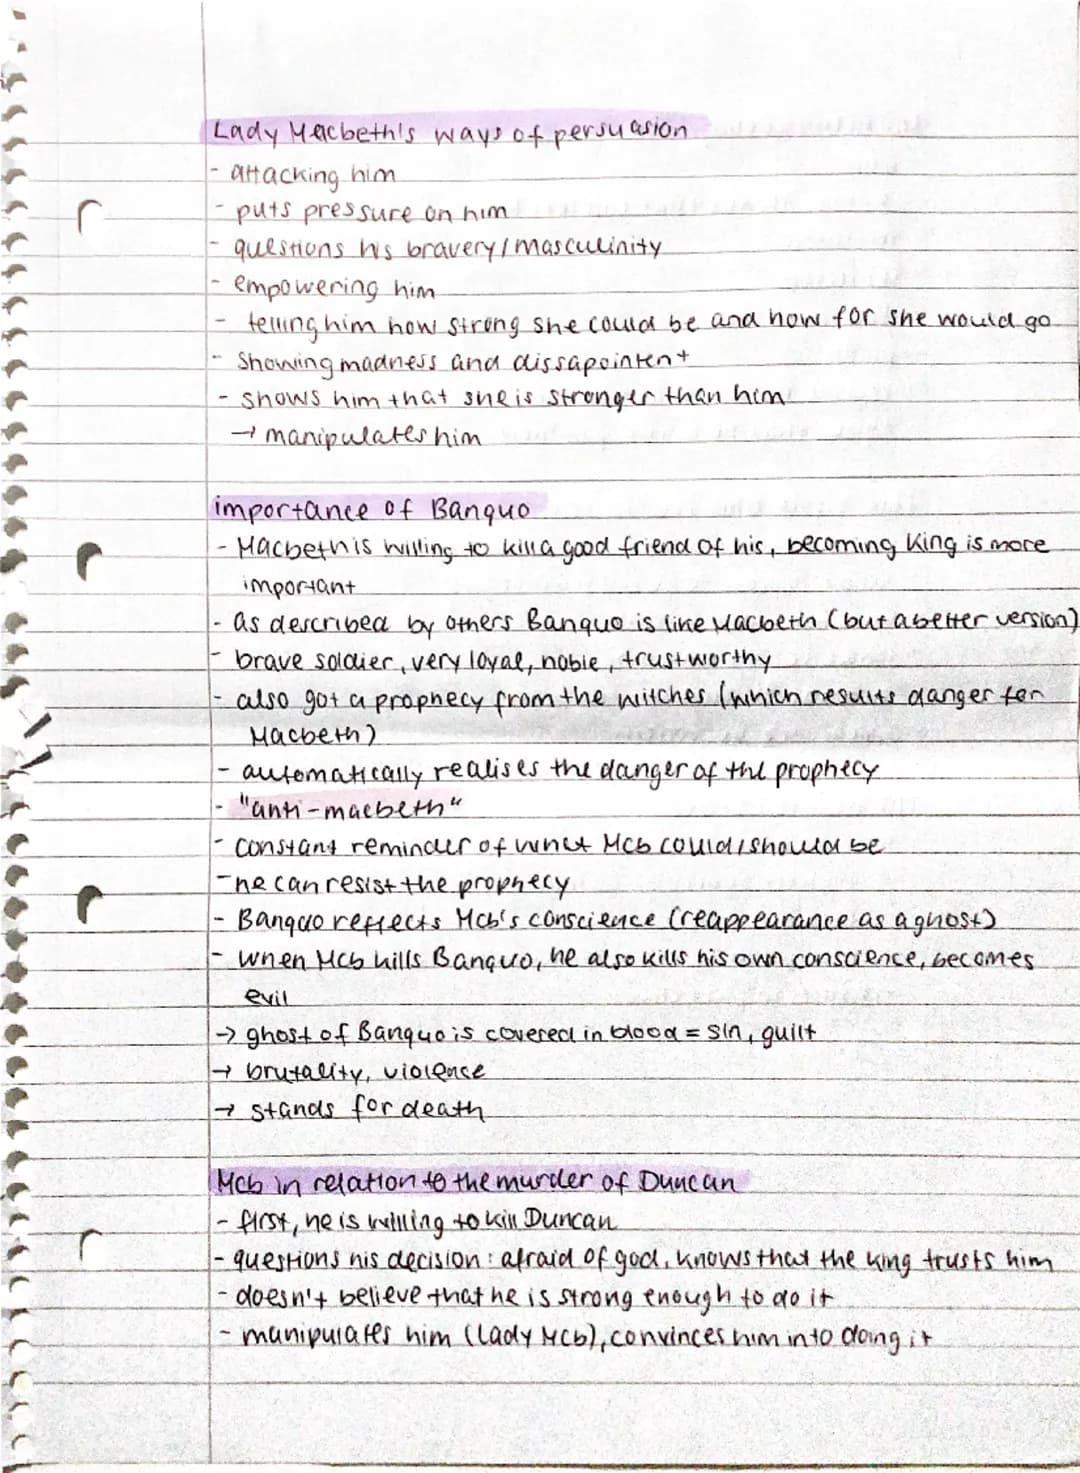 Lady Macbeth's ways of persuasion
- attacking him
- puts pressure on him
- questions his bravery/masculinity
- empowering him
- telling him how strong she could be and how far she would go
- Showing madness and dissapointent
- shows him that she is stronger than him
→ manipulates him
importance of Banquo
- Macbeth is willing to kill a good friend of his, becoming King is more
important
- as described by others Banquo is like Macbeth (but a better version)
- brave soldier, very loyal, noble, trustworthy
- also got a prophecy from the witches (which results danger for
Macbeth)
- automatically realises the danger of the prophecy
- "anti-macbeth"
- constant reminder of what Mcb could/should be
- he can resist the prophecy
- Banquo reflects Mcb's conscience (reappearance as a ghost)
- when Mcb kills Banquo, he also kills his own conscience, becomes
evil
→ ghost of Banquo is covered in blood = sin, guilt
→ brutality, violence
→ stands for death
Mcb in relation to the murder of Duncan
- first, he is willing to kill Duncan
- questions his decision: afraid of god, knows that the king trusts him
- doesn't believe that he is strong enough to do it
- manipulates him (Lady Mcb), convinces him into doing it